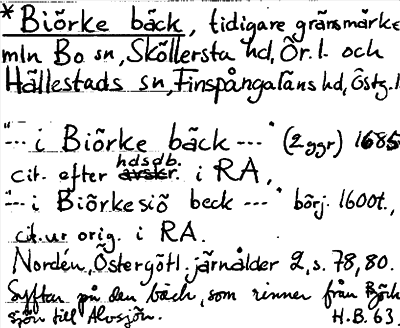 *Biörke bäck, tidigare gränsmärke
mln Bo sn, Sköllersta hd, Ör. l. och
Hällestads sn, Finspångaläns hd, Östg. l.
"--- i Biörke bäck ---" (2 ggr) 1685
cit. efter hdsdb. i RA,
"--- i Biörkesiö beck ---" börj. 1600t.,
cit. ur orig. i RA.
Nordén, Östergötl. järnålder 2, s. 78, 80.
Syftar på den bäck, som rinner från Björk-
sjön till Alvsjön. H.B. 63.